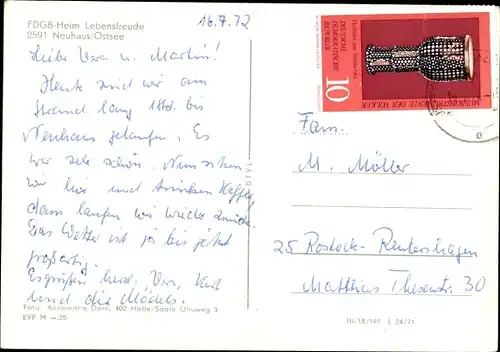 FDGB-Heim Lebensfreude
2591 Neuhaus/Ostsee
16.7.72
Liebe Vera u. Martin!
Heute sind wir am
Strand lang 1 Std. bis
Neuhaus gelaufen. Es
war sehr schön. Nun sitzen
wir hier und trinken Kaffee,
dann laufen wir wieder zurück.
Das Wetter ist ja bis jetzt
großartig.
Es grüßen herzl. Vera, Karl
und die Mädels.
Foto: Annemarie Dorn, 402 Halle/Saale Uhuweg 3
EVP M –.25
DEUTSCHE
DEMOKRATISCHE
REPUBLIK
10
MUSIKINSTRUMENTE DER VÖLKER
Fam.
M. Möller
25 Rostock-Reutershagen
Matthias Thesenstr. 30
III/18/197 L 24/71